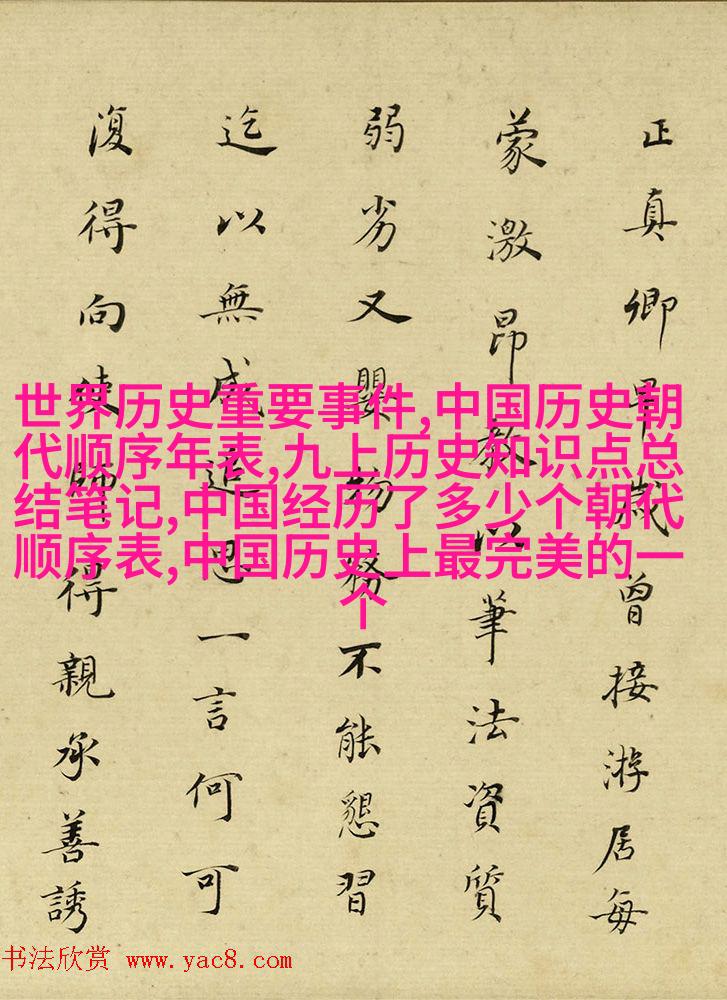 正真卿早歲曾接游居每
蒙激昂教以筆法資質
弱劣又嬰物務不能懇習
迄以無成追思一言何可
復得向使師得親承善誘
世界历史重要事件,中国历史朝
代顺序年表,九上历史知识点总
结笔记,中国经历了多少个朝代
顺序表,中国历史上最完美的一
个
书法欣赏 www.yac8.com